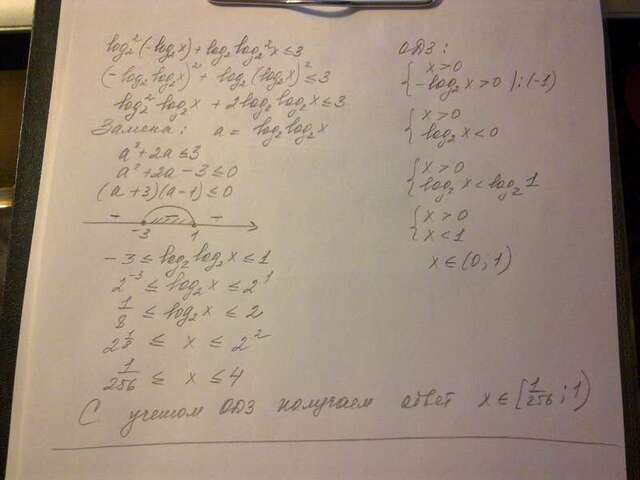 log₂²(-log₂x) + log₂log₂²x ≤ 3
(-log₂log₂x)² + log₂(log₂x)² ≤ 3
log₂²log₂x + 2log₂log₂x ≤ 3
Замена: a = log₂log₂x
a² + 2a ≤ 3
a² + 2a - 3 ≤ 0
(a + 3)(a - 1) ≤ 0
-3 1
-3 ≤ log₂log₂x ≤ 1
2⁻³ ≤ log₂x ≤ 2¹
1/8 ≤ log₂x ≤ 2
2^(1/8) ≤ x ≤ 2²
1/256 ≤ x ≤ 4
С учетом ОДЗ получаем ответ x ∈ [1/256; 1)
ОДЗ:
{ x > 0
{ -log₂x > 0 |:(-1)
{ x > 0
{ log₂x < 0
{ x > 0
{ log₂x < log₂1
{ x > 0
{ x < 1
x ∈ (0; 1)